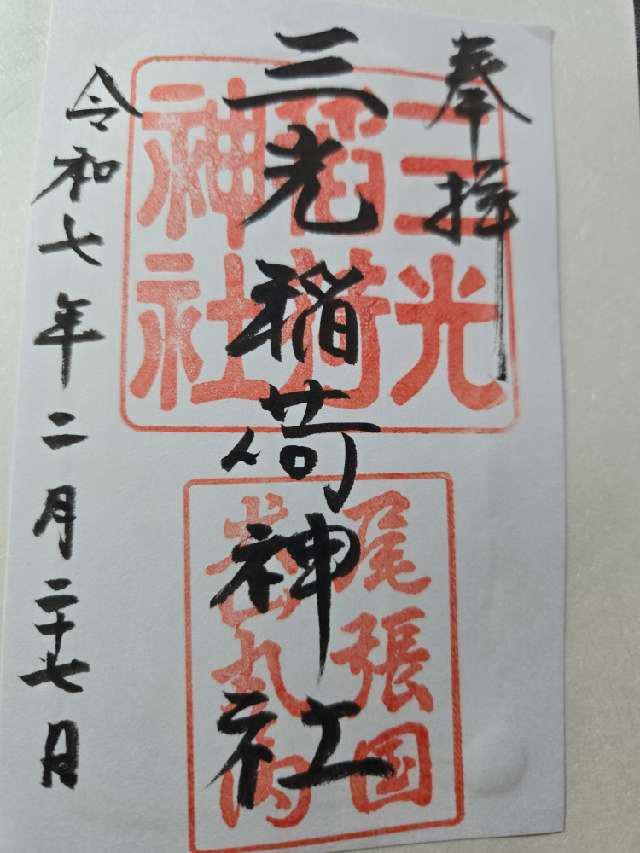 奉拝
三光稲荷神社
令和七年二月二十七日
三光
稲荷
神社
尾張国
犬山丸内